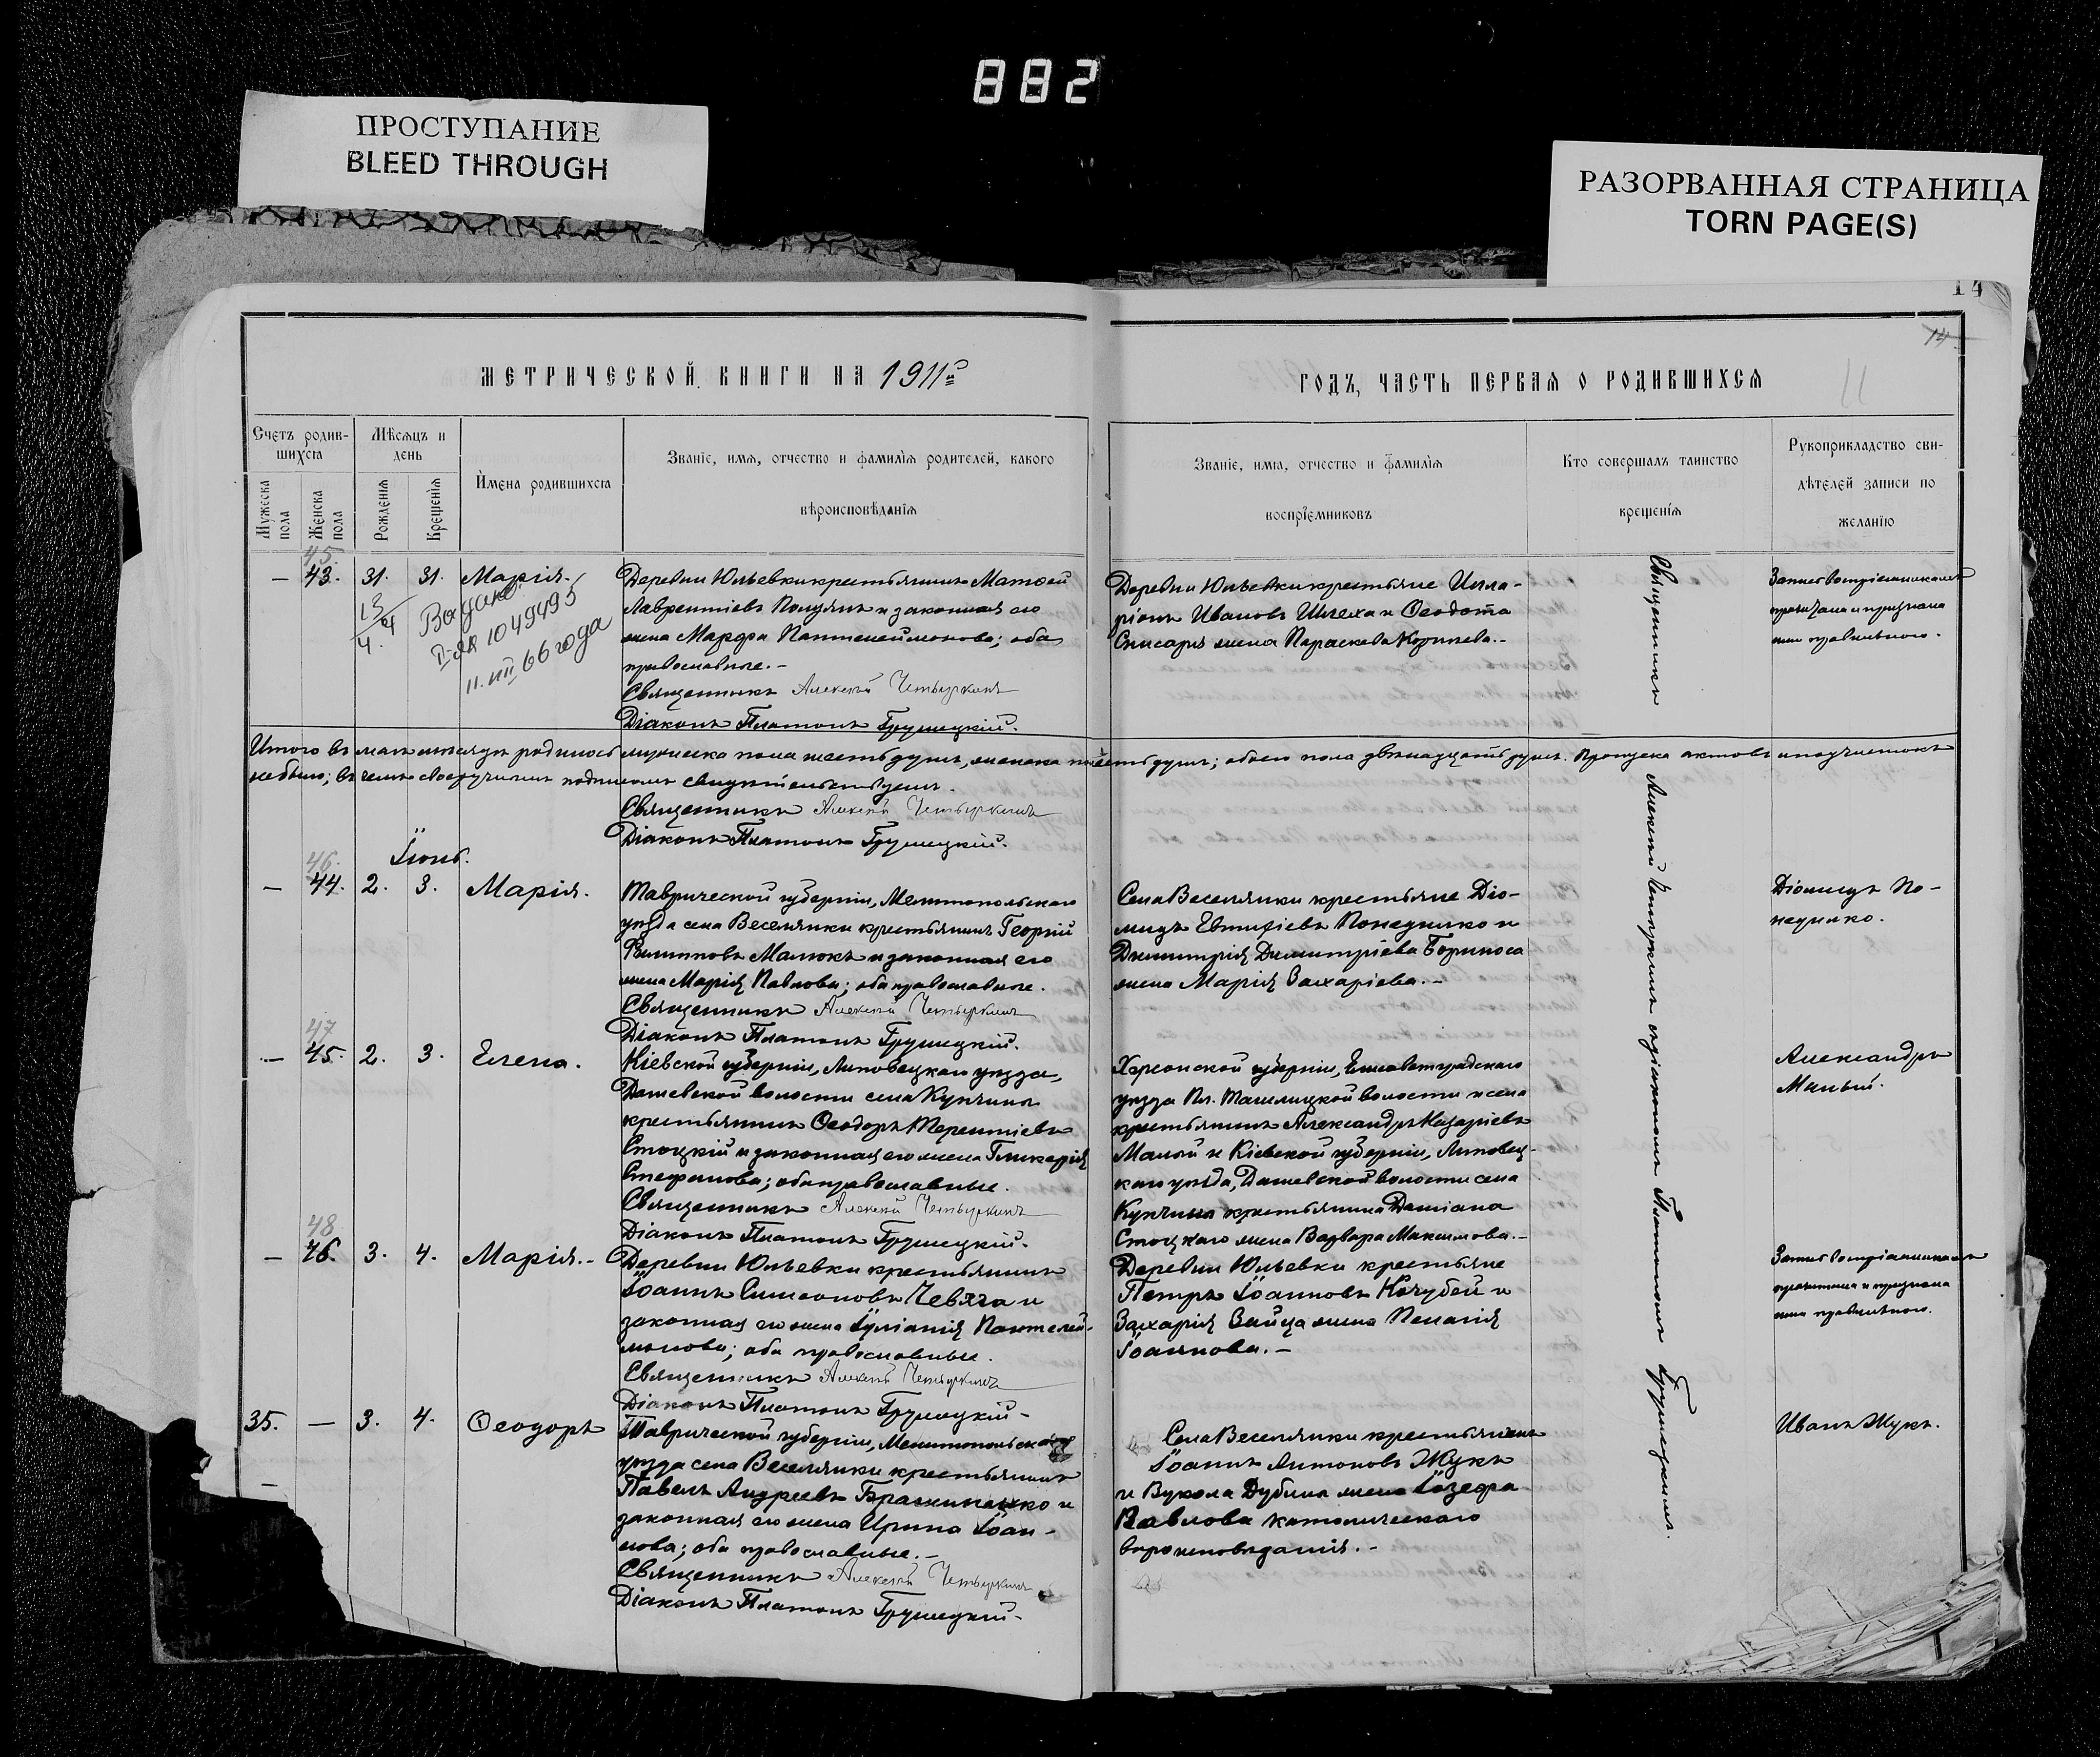 882
ПРОСТУПАНИЕ
BLEED THROUGH
РАЗОРВАННАЯ СТРАНИЦА
TORN PAGE(S)
14
14
11
МЕТРИЧЕСКОЙ КНИГИ НА 1911й
ГОДЪ, ЧАСТЬ ПЕРВАЯ О РОДИВШИХСЯ
Счетъ родив-
шихся
Мѣсяцъ и
день
Мужеска
пола
Женска
пола
Рожденія
Крещенія
Имена родившихся
Званіе, имя, отчество и фамилія родителей, какого
вѣроисповѣданія
Званіе, имя, отчество и фамилія
воспріемниковъ
Кто совершалъ таинство
крещенія
Рукоприкладство сви-
дѣтелей записи по
желанію
45.
— 43. 31. 31. Марія.
Выдано
1049495
66 года
Деревни Юльевки крестьянинъ Матѳей
Лаврентіевъ и законная его
жена Марфа Пантелеймонова; оба
православные. –
Священникъ Алексѣй Четыркинъ
Діаконъ Платонъ Грушецкій.
Деревни Юльевки крестьяне Илла-
ріонъ Ивановъ и Ѳеодота
жена Параскева –
правильною.
Итого въ маѣ мѣсяцѣ родилось мужеска пола шесть душъ, женска шесть душъ; обоего пола двѣнадцать душъ. Пропуска актовъ и подчистокъ
не было; въ чемъ своеручнымъ подписомъ свидѣтельствуемъ.
Священникъ Алексѣй Четыркинъ
Діаконъ Платонъ Грушецкій.
Іюнь.
46.
— 44. 2. 3. Марія.
Таврической губерніи, Мелитопольскаго
уѣзда села Веселянки крестьянинъ Георгій
Малюкъ и законная его
жена Марія Павлова; оба православные.
Священникъ Алексѣй Четыркинъ
Діаконъ Платонъ Грушецкій.
Села Веселянки крестьяне Діо-
мидъ Евтихіевъ и
Димитрія Димитріева
жена Марія Захаріева. –
Діомидъ По-
47
— 45. 2. 3. Елена.
Кіевской губерніи, Липовецкаго уѣзда,
Дашевской волости села Купчинцъ
крестьянинъ Ѳеодоръ Терентіевъ
Стоцкій и законная его жена Гликерія
Стефанова; оба православные.
Священникъ Алексѣй Четыркинъ
Діаконъ Платонъ Грушецкій.
Херсонской губерніи, Елисаветградскаго
уѣзда Пл. Ташлицкой волости и села
крестьянинъ Александръ Назаріевъ
Малый и Кіевской губерніи, Липовец-
каго уѣзда, Дашевской волости села
крестьянина Даміана
Стоцкаго жена Варвара Максимова. –
Александръ
Малый.
48
— 46. 3. 4. Марія. –
Деревни Юльевки крестьянинъ
Іоаннъ Симеоновъ и
законная его жена Іуліанія Пантелей-
монова; оба православные.
Священникъ Алексѣй Четыркинъ
Діаконъ Платонъ Грушецкій –
Деревни Юльевки крестьяне
Петръ Іоанновъ Кочубей и
Захарія Зайца жена Пелагія
Іоаннова. –
правильною.
35. — 3. 4. Ѳеодоръ
Таврической губерніи, Мелитопольскаго
уѣзда села Веселянки крестьянинъ
Павелъ Андреевъ и
законная его жена Ирина Іоан-
нова; оба православные. –
Священникъ Алексѣй Четыркинъ
Діаконъ Платонъ Грушецкій –
Села Веселянки крестьянинъ
Іоаннъ Антоновъ Жукъ
и Вукола Дубина жена Іозефа
Павлова католическаго
вѣроисповѣданія. –
Иванъ Жукъ.
Священникъ Алексѣй Четыркинъ съ діакономъ Платономъ Грушецкимъ.